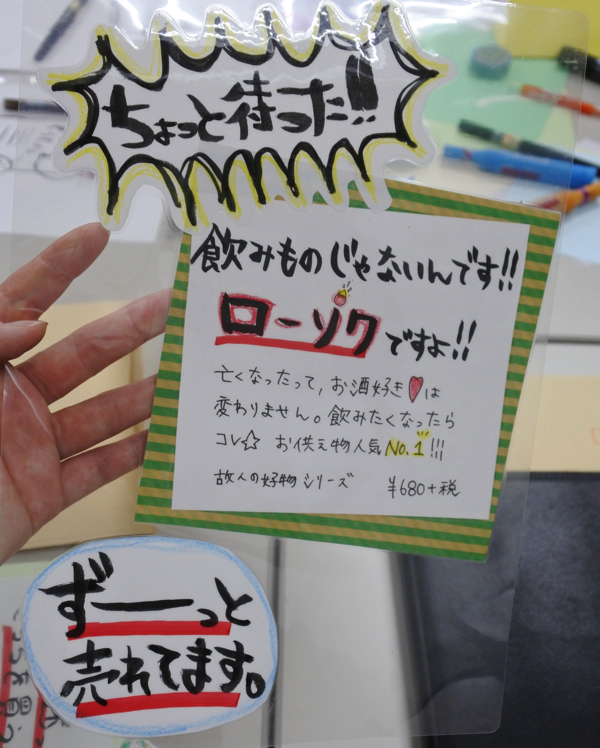 ちょっと待った!!
飲みものじゃないんです!!
ローソクですよ!!
亡くなったって、お酒好き♥は
変わりません。飲みたくなったら
コレ☆ お供え物人気No.1!!!
故人の好物シリーズ ¥680+税
ずーっと
売れてます。
を買う